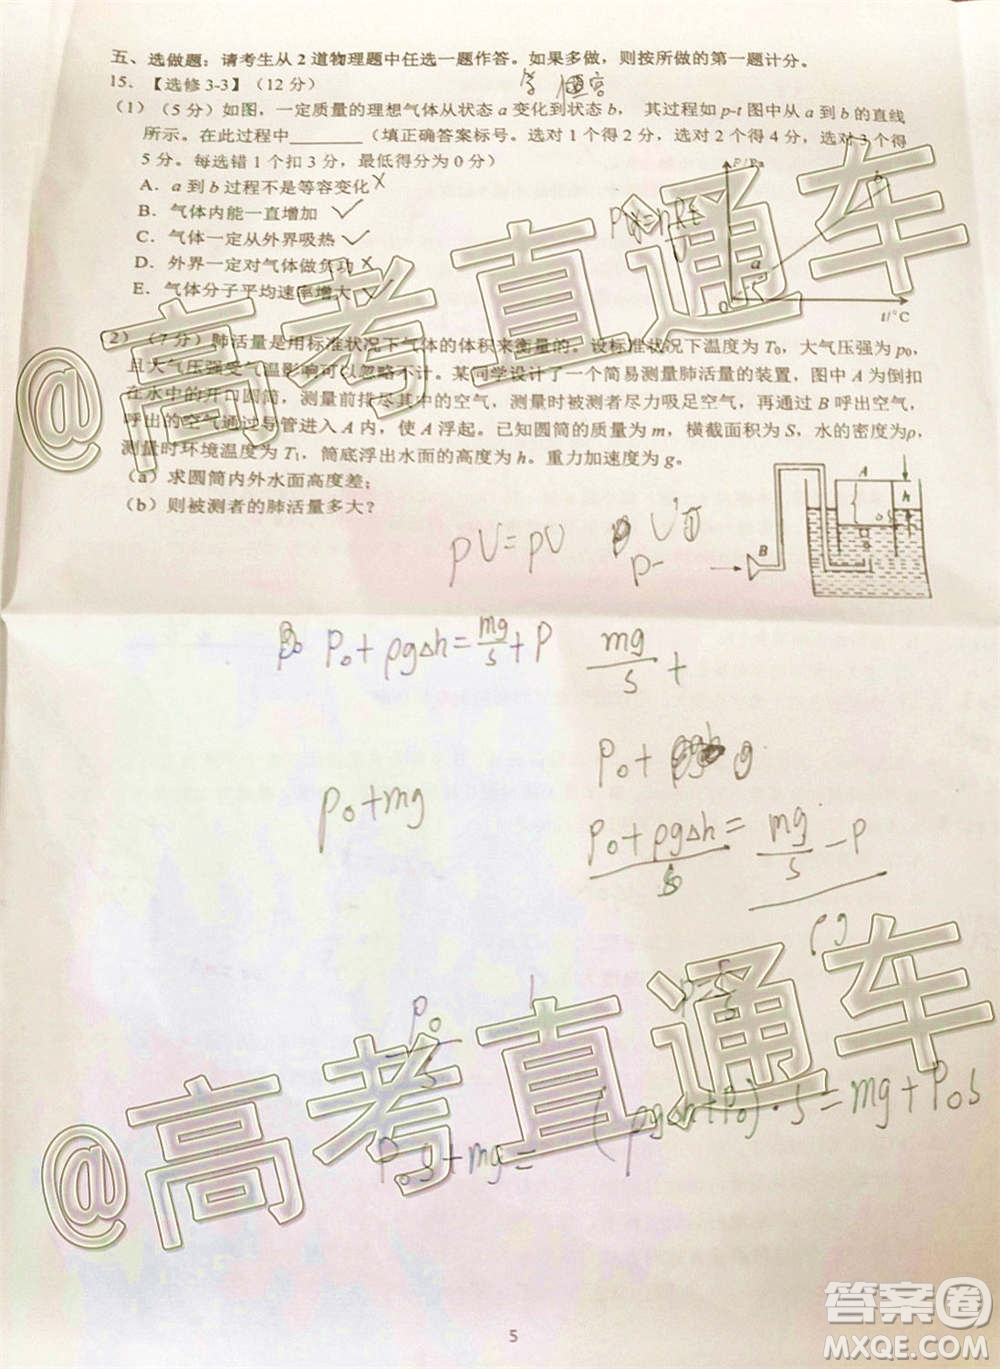 五、选做题：请考生从 2 道物理题中任选一题作答。如果多做，则按所做的第一题计分。
15．【选修 3-3】（12 分）
（1）（5 分）如图，一定质量的理想气体从状态 a 变化到状态 b， 其过程如 p-t 图中从 a 到 b 的直线
所示。在此过程中_______（填正确答案标号。选对 1 个得 2 分，选对 2 个得 4 分，选对 3 个得
5 分。每选错 1 个扣 3 分，最低得分为 0 分）
A．a 到 b 过程不是等容变化 ×
B．气体内能一直增加 ✓
C．气体一定从外界吸热 ✓
D．外界一定对气体做负功 ×
E．气体分子平均速率增大 ✓
p/Pa
b
a
O
t/°C
2）（7 分）肺活量是用标准状况下气体的体积来衡量的。设标准状况下温度为 T₀，大气压强为 p₀，
且大气压强受气温影响可以忽略不计。某同学设计了一个简易测量肺活量的装置，图中 A 为倒扣
在水中的开口圆筒，测量前排尽其中的空气，测量时被测者尽力吸足空气，再通过 B 呼出空气，
呼出的空气通过导管进入 A 内，使 A 浮起。已知圆筒的质量为 m，横截面积为 S，水的密度为ρ，
测量时环境温度为 T₁，筒底浮出水面的高度为 h。重力加速度为 g。
（a）求圆筒内外水面高度差；
（b）则被测者的肺活量多大？
A
h
B
pV=pV
P₀+ρgΔh=mg/s+P
mg/s+
P₀+
P₀+mg
P₀+ρgΔh=mg/s-P
ρg
P₀s+mg=
(ρgΔh+P₀)·s=mg+P₀s
@高考直通车
@高考直通车
5
答案圈
MXQE.COM